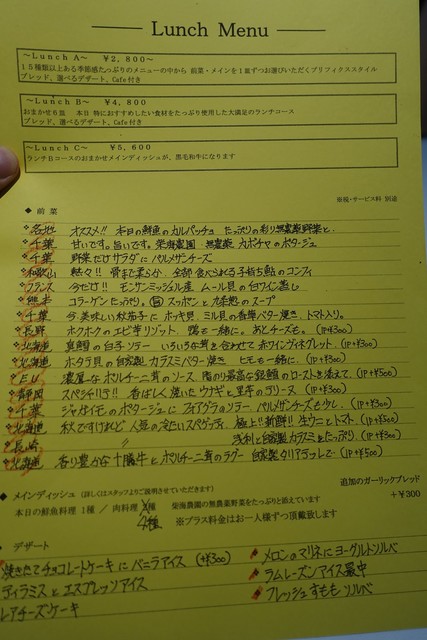 Lunch Menu
～Lunch A～ ￥2,800～
15種類以上ある季節感たっぷりのメニューの中から 前菜・メインを1皿ずつお選びいただくプリフィクススタイル
ブレッド、選べるデザート、Cafe付き
～Lunch B～ ￥4,800
おまかせ6皿 本日 特におすすめしたい食材をたっぷり使用した大満足のランチコース
ブレッド、選べるデザート、Cafe付き
～Lunch C～ ￥5,600
ランチBコースのおまかせメインディッシュが、黒毛和牛になります
※税・サービス料 別途
◆ 前菜
各地 オススメ!! 本日の鮮魚のカルパッチョ たっぷりの彩り無農薬野菜と。
千葉 甘いです。旨いです。栄海農園 無農薬 カボチャのポタージュ
千葉 野菜だけサラダに パルメザンチーズ
和歌山 鮎々!! 骨まで柔らか 全部食べられる子持ち鮎のコンフィ
フランス 今だけ!! モンサンミッシェル産 ムール貝の白ワイン蒸し
熊本 コラーゲンたっぷり。スッポンと九条葱のスープ
千葉 今、美味しい秋茄子に ホッキ貝、ミル貝の香草バター焼き、トマト入り。
長野 ホクホクのエビ芋リゾット 鴨も一緒に。あとチーズも。(1P¥300)
北海道 真鱈の白子ソテー いろいろな茸を合わせて 赤ワインヴィネグレット。(1P+¥500)
北海道 ホタテ貝の自家製カラスミバター焼き ヒモも一緒に。(1P+¥300)
EU 濃厚なポルチーニ茸のソース 脂のり最高な銀鱈のローストを添えて。(1P+¥500)
静岡 スペシャリテ!! 香ばしく焼いたウナギと里芋のテリーヌ (1P+¥300)
千葉 ジャガイモのポタージュに フォアグラのソテー パルメザンチーズも少し。(1P+¥300)
北海道 秋ですけれど 人気の冷たいスパゲティ 極上!!新鮮!! 生ウニとトマト。(1P+¥500)
長崎 〃 浅利と自家製カラスミをたっぷり。(1P+¥300)
北海道 香り豊かな十勝牛とポルチーニ茸のラグー 自家製タリアテッレで (1P+¥500)
◆ メインディッシュ (詳しくはスタッフよりご説明させていただきます) 追加のガーリックブレッド
本日の鮮魚料理 1種 / 肉料理 4種 ※栄海農園の無農薬野菜をたっぷりと添えています +￥300
※プラス料金はお一人様ずつ頂戴致します
◆ デザート
焼きたてチョコレートケーキにバニラアイス (+¥300) メロンのマリネにヨーグルトソルベ
ティラミスとエスプレッソアイス ラムレーズンアイス最中
レアチーズケーキ フレッシュすももソルベ